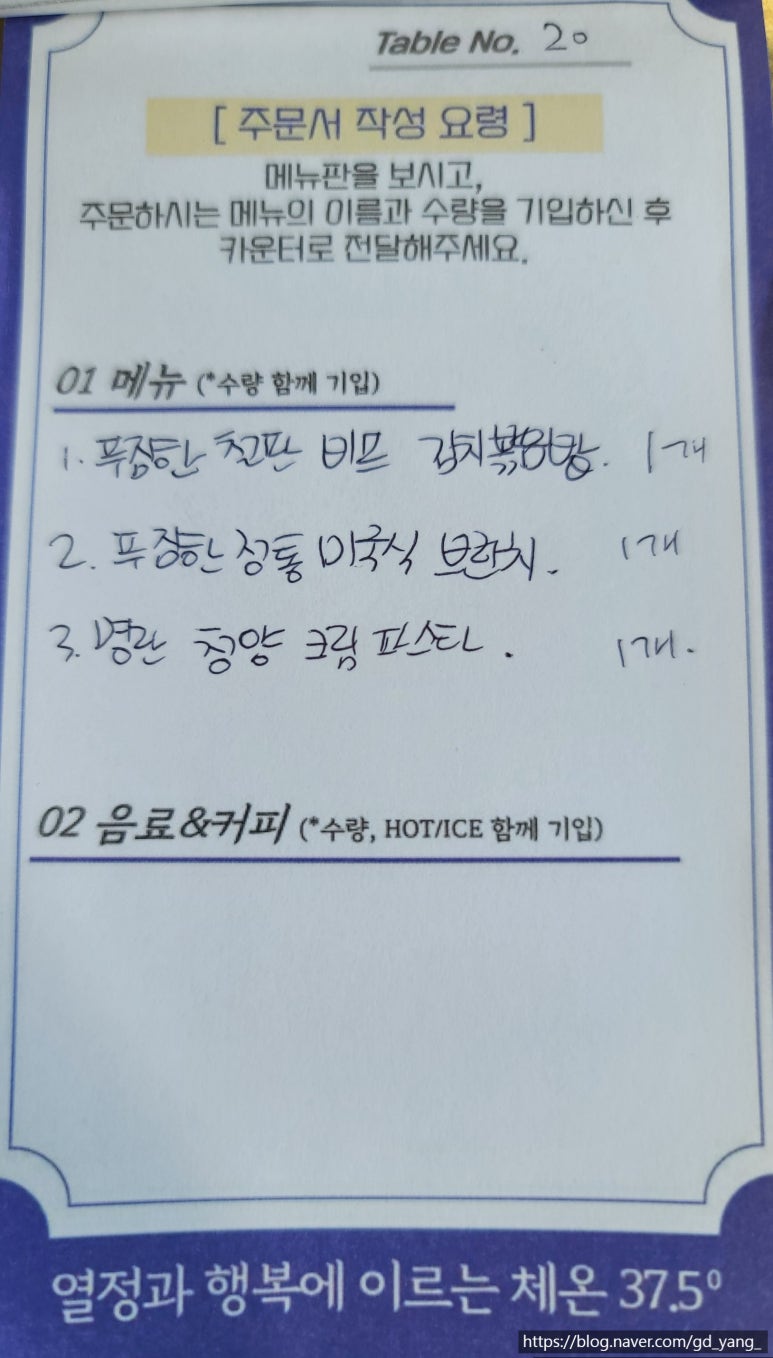 Table No. 20
[ 주문서 작성 요령 ]
메뉴판을 보시고,
주문하시는 메뉴의 이름과 수량을 기입하신 후
카운터로 전달해주세요.
01 메뉴 (*수량 함께 기입)
1. 푸짐한 철판 비프 김치볶음밥. 1개
2. 푸짐한 정통 미국식 브런치. 1개
3. 명란 청양 크림 파스타. 1개.
02 음료&커피 (*수량, HOT/ICE 함께 기입)
열정과 행복에 이르는 체온 37.5⁰
https://blog.naver.com/gd_yang_